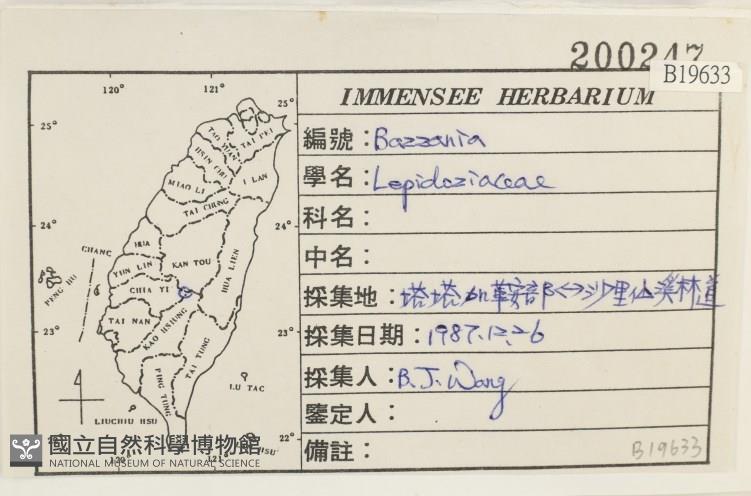 200247
B19633
IMMENSEE HERBARIUM
編號：Bazzania
學名：Lepidoziaceae
科名：
中名：
採集地：塔塔加鞍部<->沙里仙溪林道
採集日期：1987.12.26
採集人：B.J.Wang
鑒定人：
備註：
B19633
120°
121°
25°
25°
TAO YUAN
TAI PEI
HSIN CHU
I LAN
MIAO LI
TAI CHUNG
24°
24°
CHANG
HUA
NAN TOU
HUA LIEN
PENG HU
YUN LIN
CHIA YI
TAI NAN
KAO HSIUNG
23°
23°
TAI TUNG
PING TUNG
LU TAO
LIUCHIU HSU
22°
HSU
120°
121°
國立自然科學博物館
NATIONAL MUSEUM OF NATURAL SCIENCE